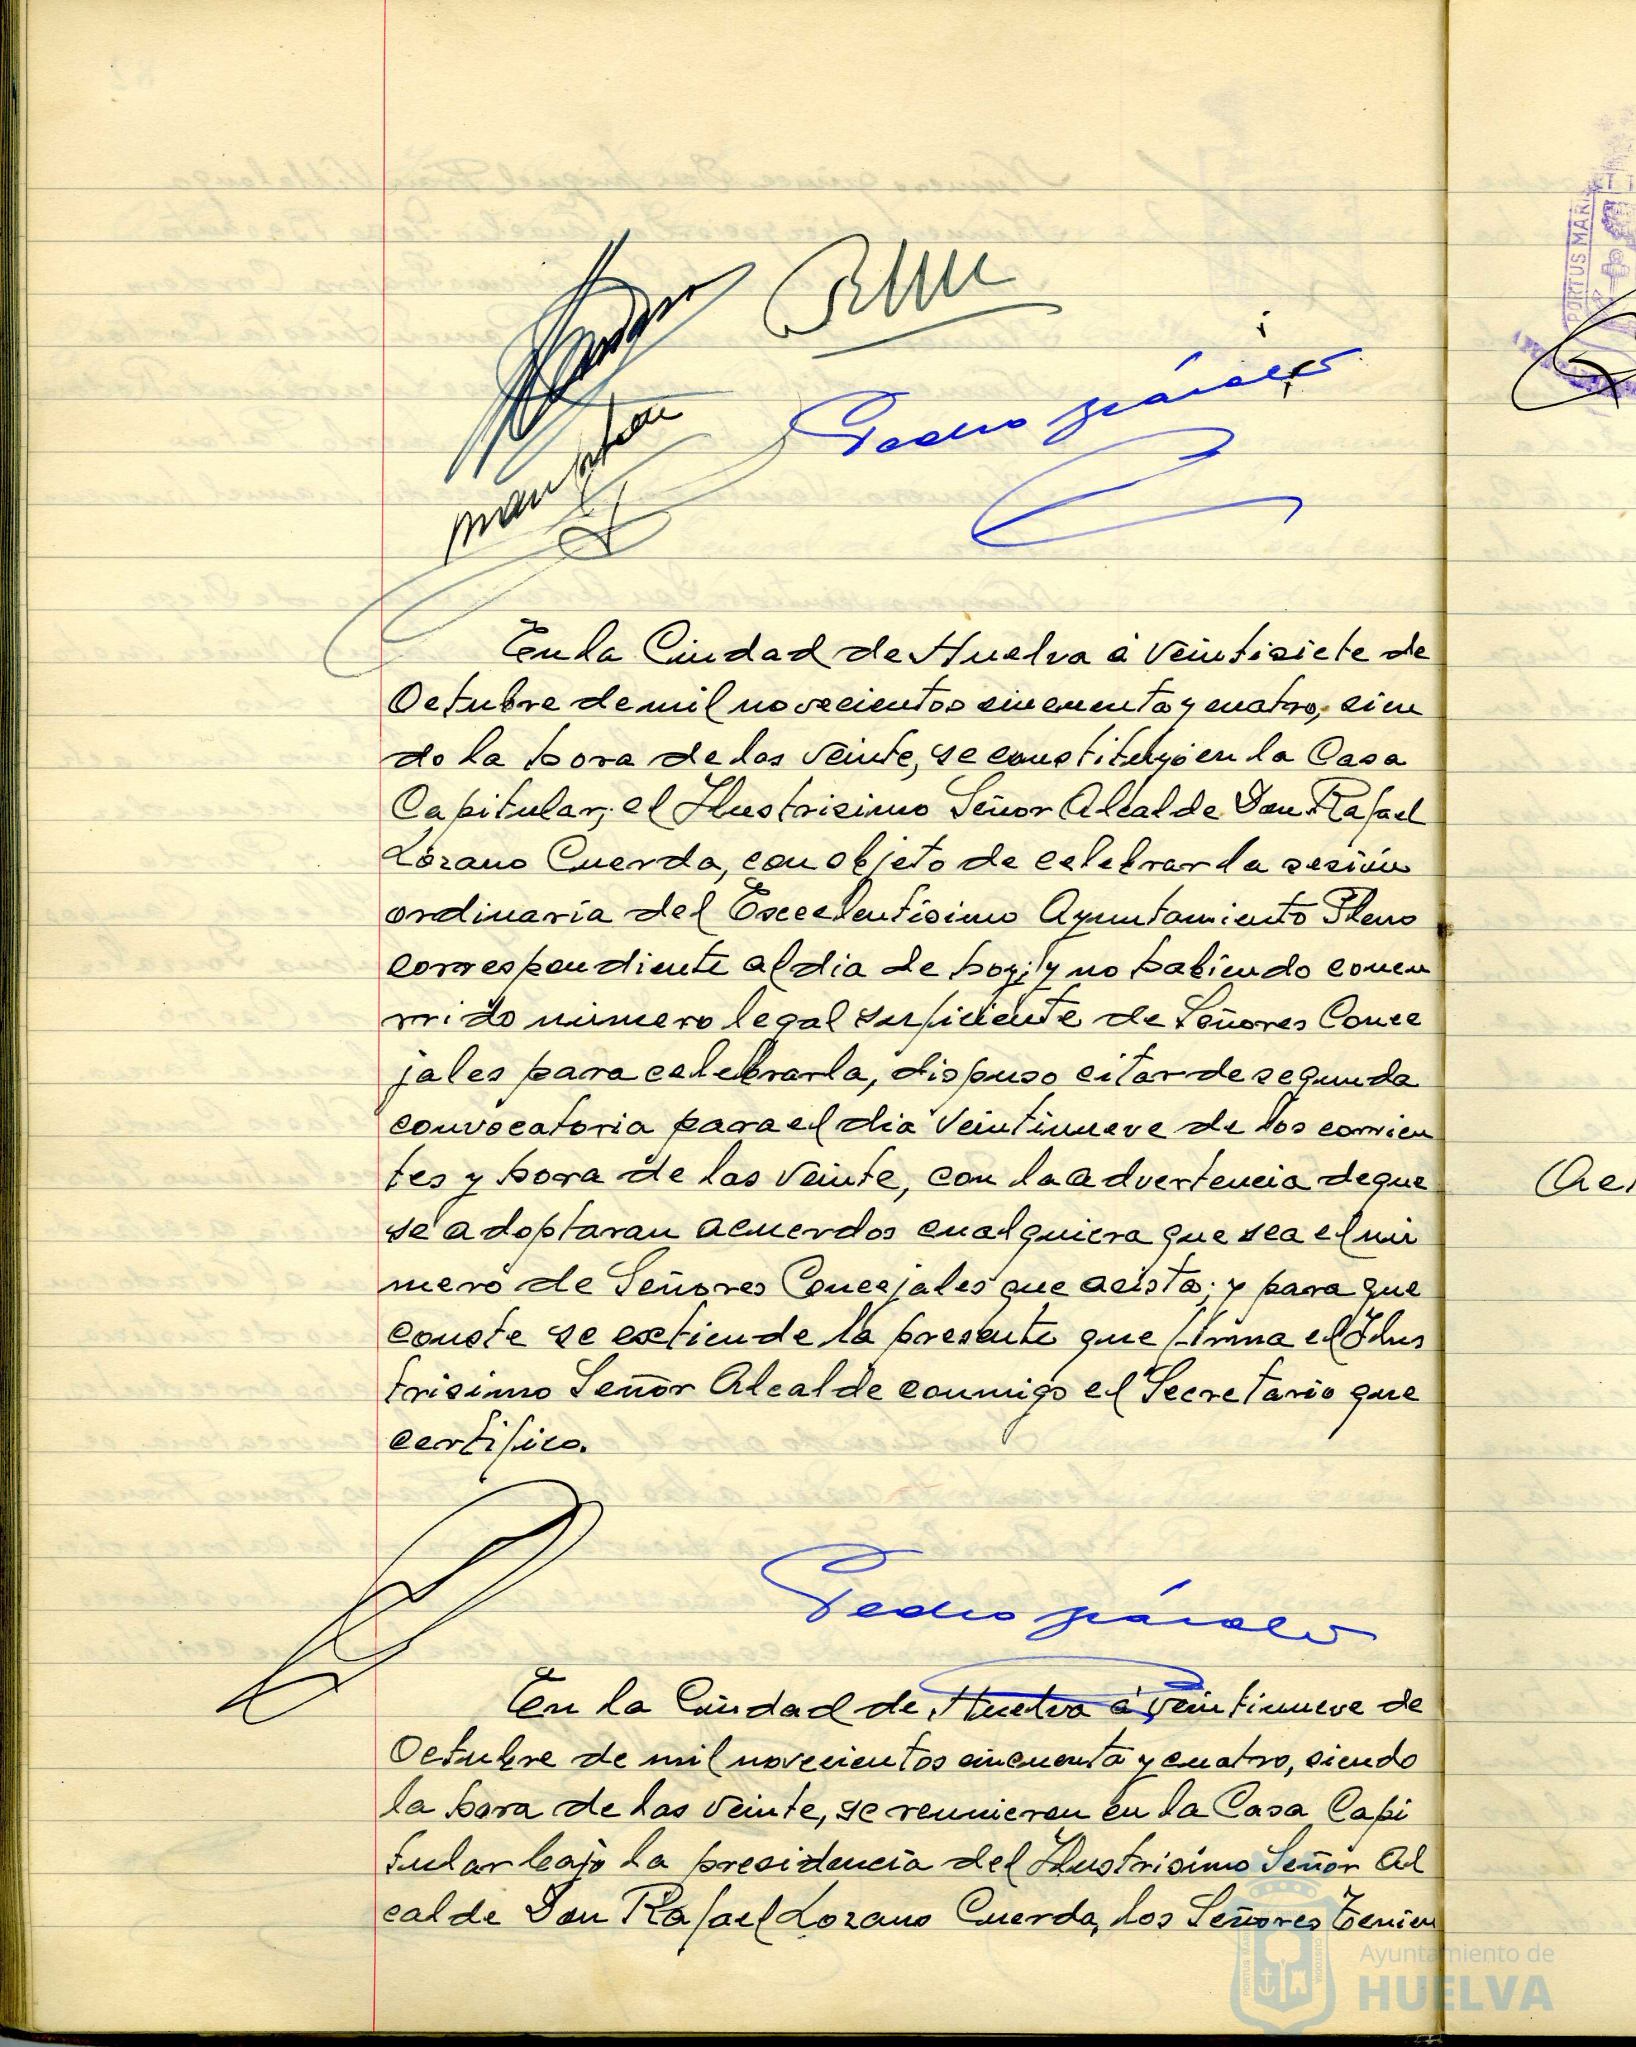 Pedro
En la Ciudad de Huelva á veintisiete de
Octubre de mil novecientos cincuenta y cuatro, sien
do la hora de las veinte, se constituyó en la Casa
Capitular, el Ilustrisimo Señor Alcalde Don Rafael
Lozano Cuerda, con objeto de celebrar la sesión
ordinaria del Excelentisimo Ayuntamiento Pleno
correspondiente al dia de hoy; y no habiendo concu
rrido número legal suficiente de Señores Conce
jales para celebrarla, dispuso citar de segunda
convocatoria para el dia veintinueve de los corrien
tes y hora de las veinte, con la advertencia de que
se adoptaran acuerdos cualquiera que sea el nú
mero de Señores Concejales que asista; y para que
conste se extiende la presente que firma el Ilus
trisimo Señor Alcalde conmigo el Secretario que
certifico.
Pedro
En la Ciudad de Huelva á veintinueve de
Octubre de mil novecientos cincuenta y cuatro, siendo
la hora de las veinte, se reunieron en la Casa Capi
tular bajo la presidencia del Ilustrisimo Señor Al
calde Don Rafael Lozano Cuerda, los Señores Tenien
PORTUS MARIS
Ayuntamiento de
HUELVA